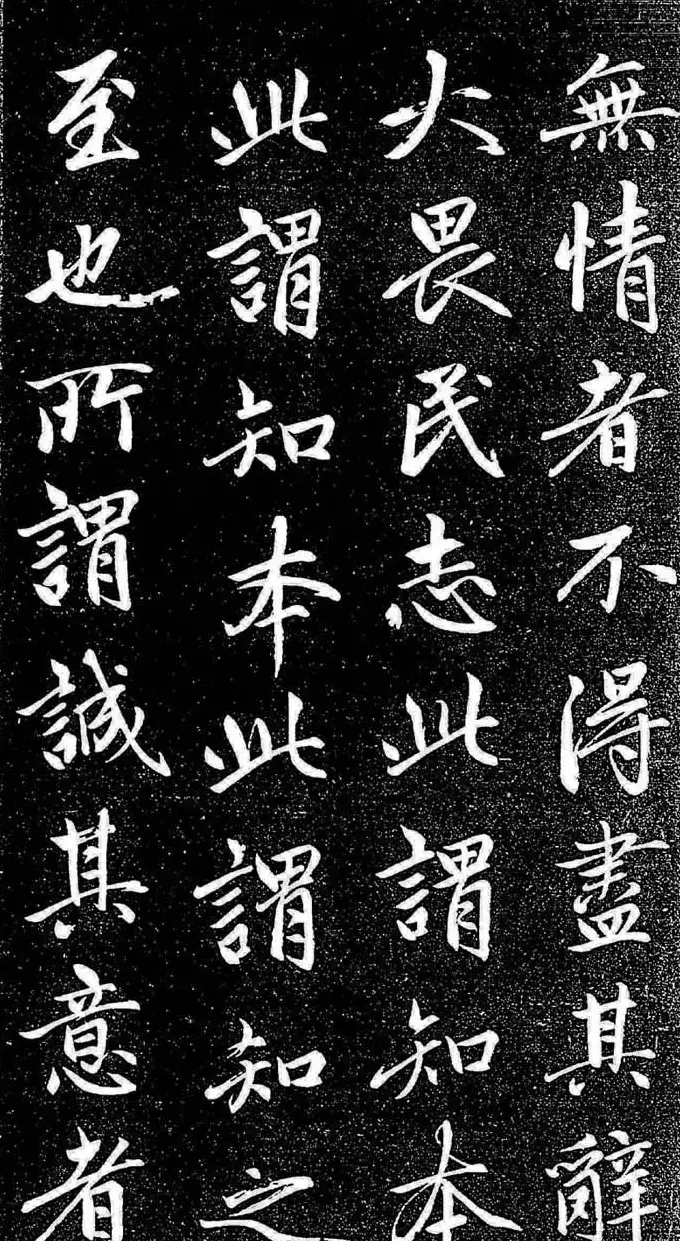 無情者不得盡其辭
大畏民志此謂知本
此謂知本此謂知之
至也所謂誠其意者